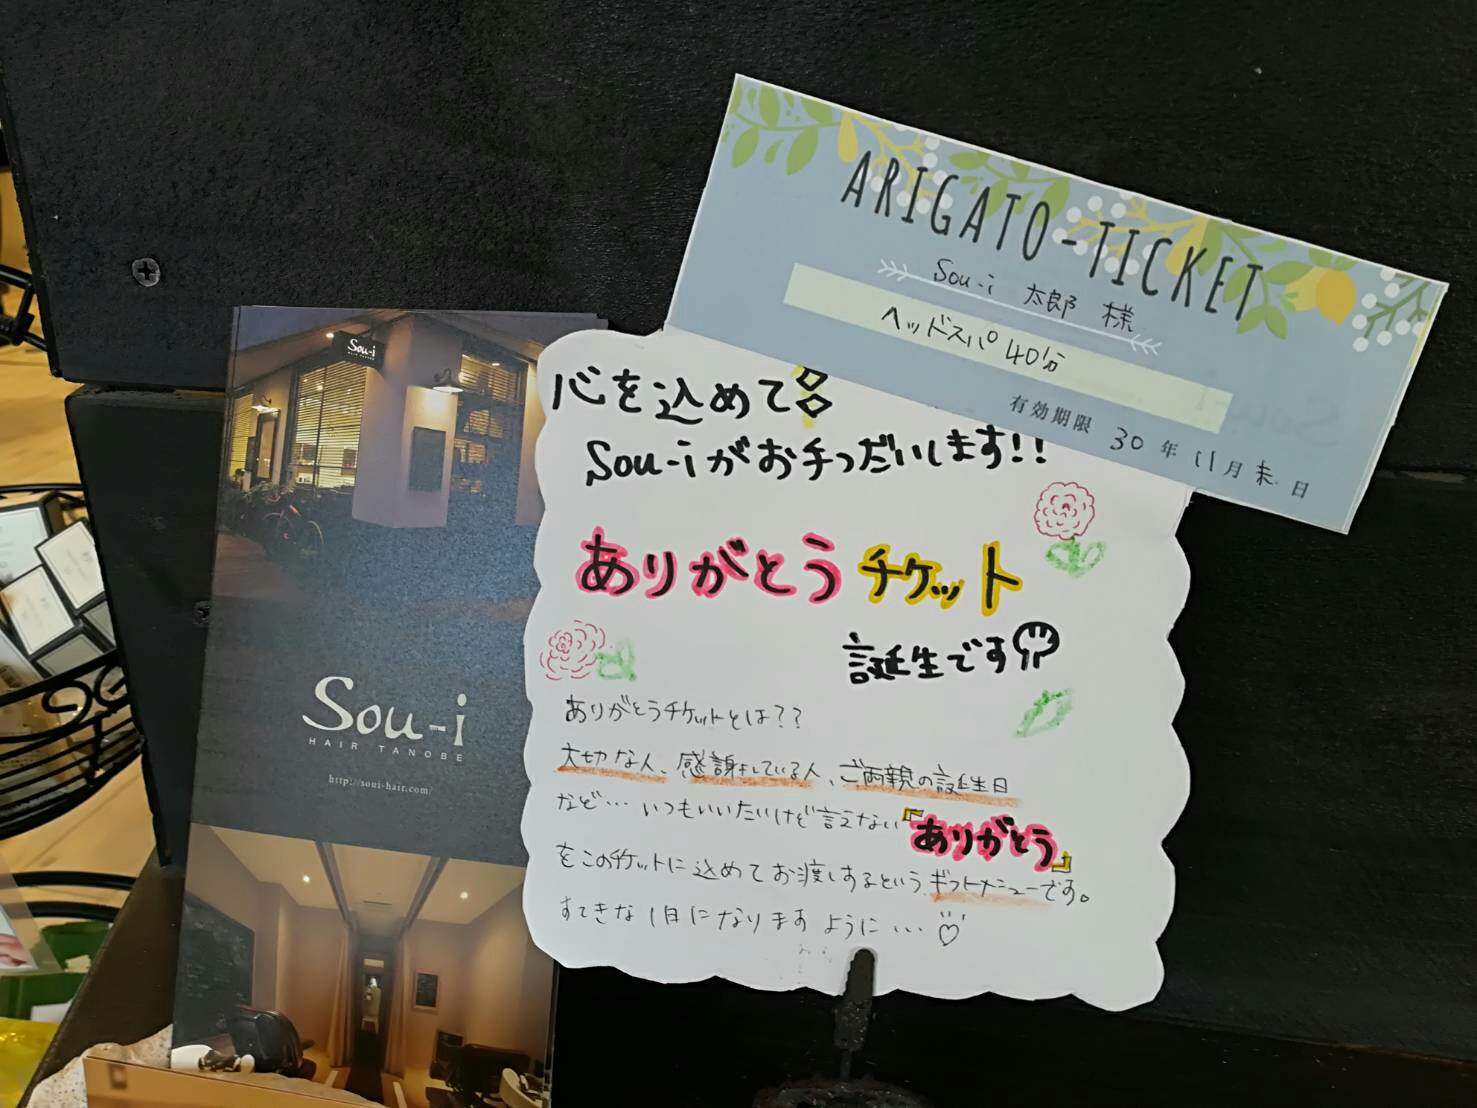 ARIGATO-TICKET
Sou-i 太郎 様
ヘッドスパ 40分
有効期限 30 年 11 月 末 日
Sou-i
HAIR TANOBE
心を込めて
Sou-iがお手つだいします!!
ありがとうチケット
誕生です
ありがとうチケットとは??
大切な人、感謝をしている人、ご両親の誕生日
など… いつもいいたいけど言えない『ありがとう』
をこのチケットに込めてお渡しするという、ギフトメニューです。
すてきな1日になりますように…♡
Sou-i
HAIR TANOBE
http://soui-hair.com/